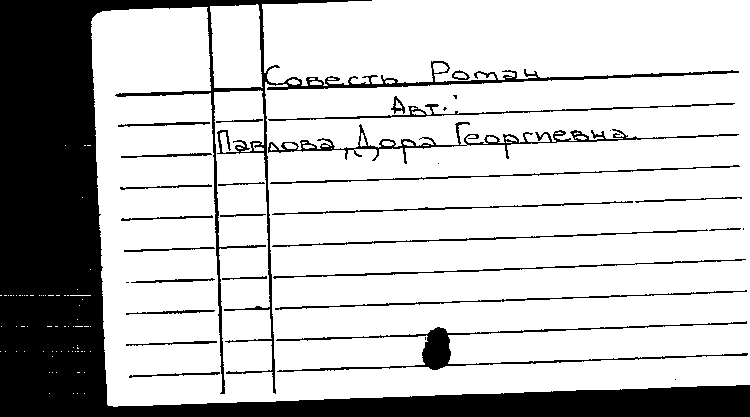 Совесть. Роман
Авт.:
Павлова, Дора Георгиевна.